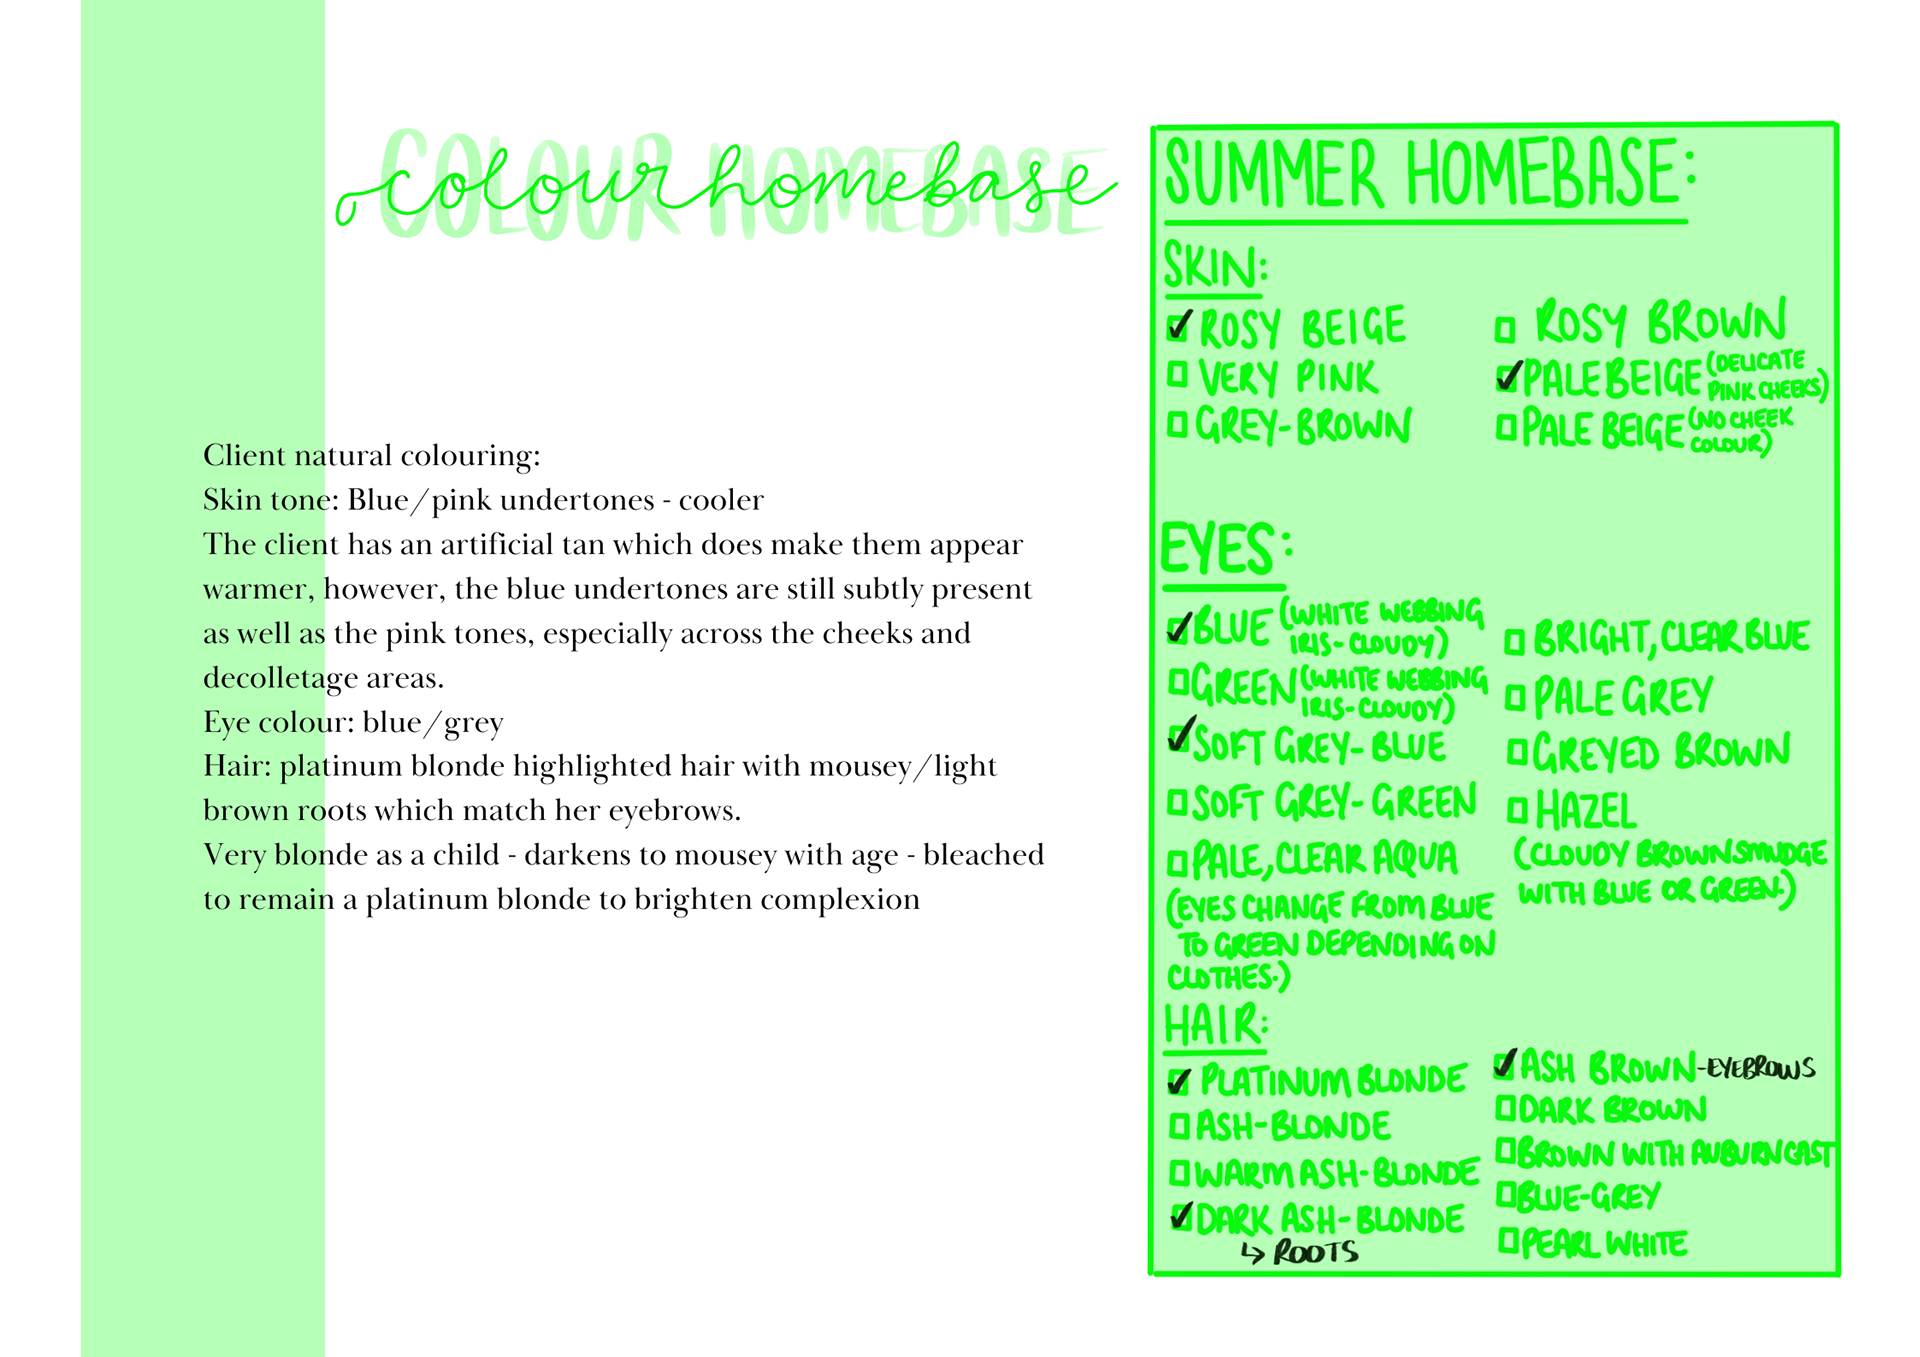 COLOUR HOMEBASE
colour homebase
Client natural colouring:
Skin tone: Blue/pink undertones - cooler
The client has an artificial tan which does make them appear
warmer, however, the blue undertones are still subtly present
as well as the pink tones, especially across the cheeks and
decolletage areas.
Eye colour: blue/grey
Hair: platinum blonde highlighted hair with mousey/light
brown roots which match her eyebrows.
Very blonde as a child - darkens to mousey with age - bleached
to remain a platinum blonde to brighten complexion
SUMMER HOMEBASE:
SKIN:
ROSY BEIGE
VERY PINK
GREY-BROWN
ROSY BROWN
PALE BEIGE (DELICATE
PINK CHEEKS)
PALE BEIGE (NO CHEEK
COLOUR)
EYES:
BLUE (WHITE WEBBING
IRIS-CLOUDY)
GREEN (WHITE WEBBING
IRIS-CLOUDY)
SOFT GREY-BLUE
SOFT GREY-GREEN
PALE, CLEAR AQUA
(EYES CHANGE FROM BLUE
TO GREEN DEPENDING ON
CLOTHES.)
BRIGHT, CLEAR BLUE
PALE GREY
GREYED BROWN
HAZEL
(CLOUDY BROWN SMUDGE
WITH BLUE OR GREEN.)
HAIR:
PLATINUM BLONDE
ASH-BLONDE
WARM ASH-BLONDE
DARK ASH-BLONDE
↳ ROOTS
ASH BROWN-EYEBROWS
DARK BROWN
BROWN WITH AUBURN CAST
BLUE-GREY
PEARL WHITE